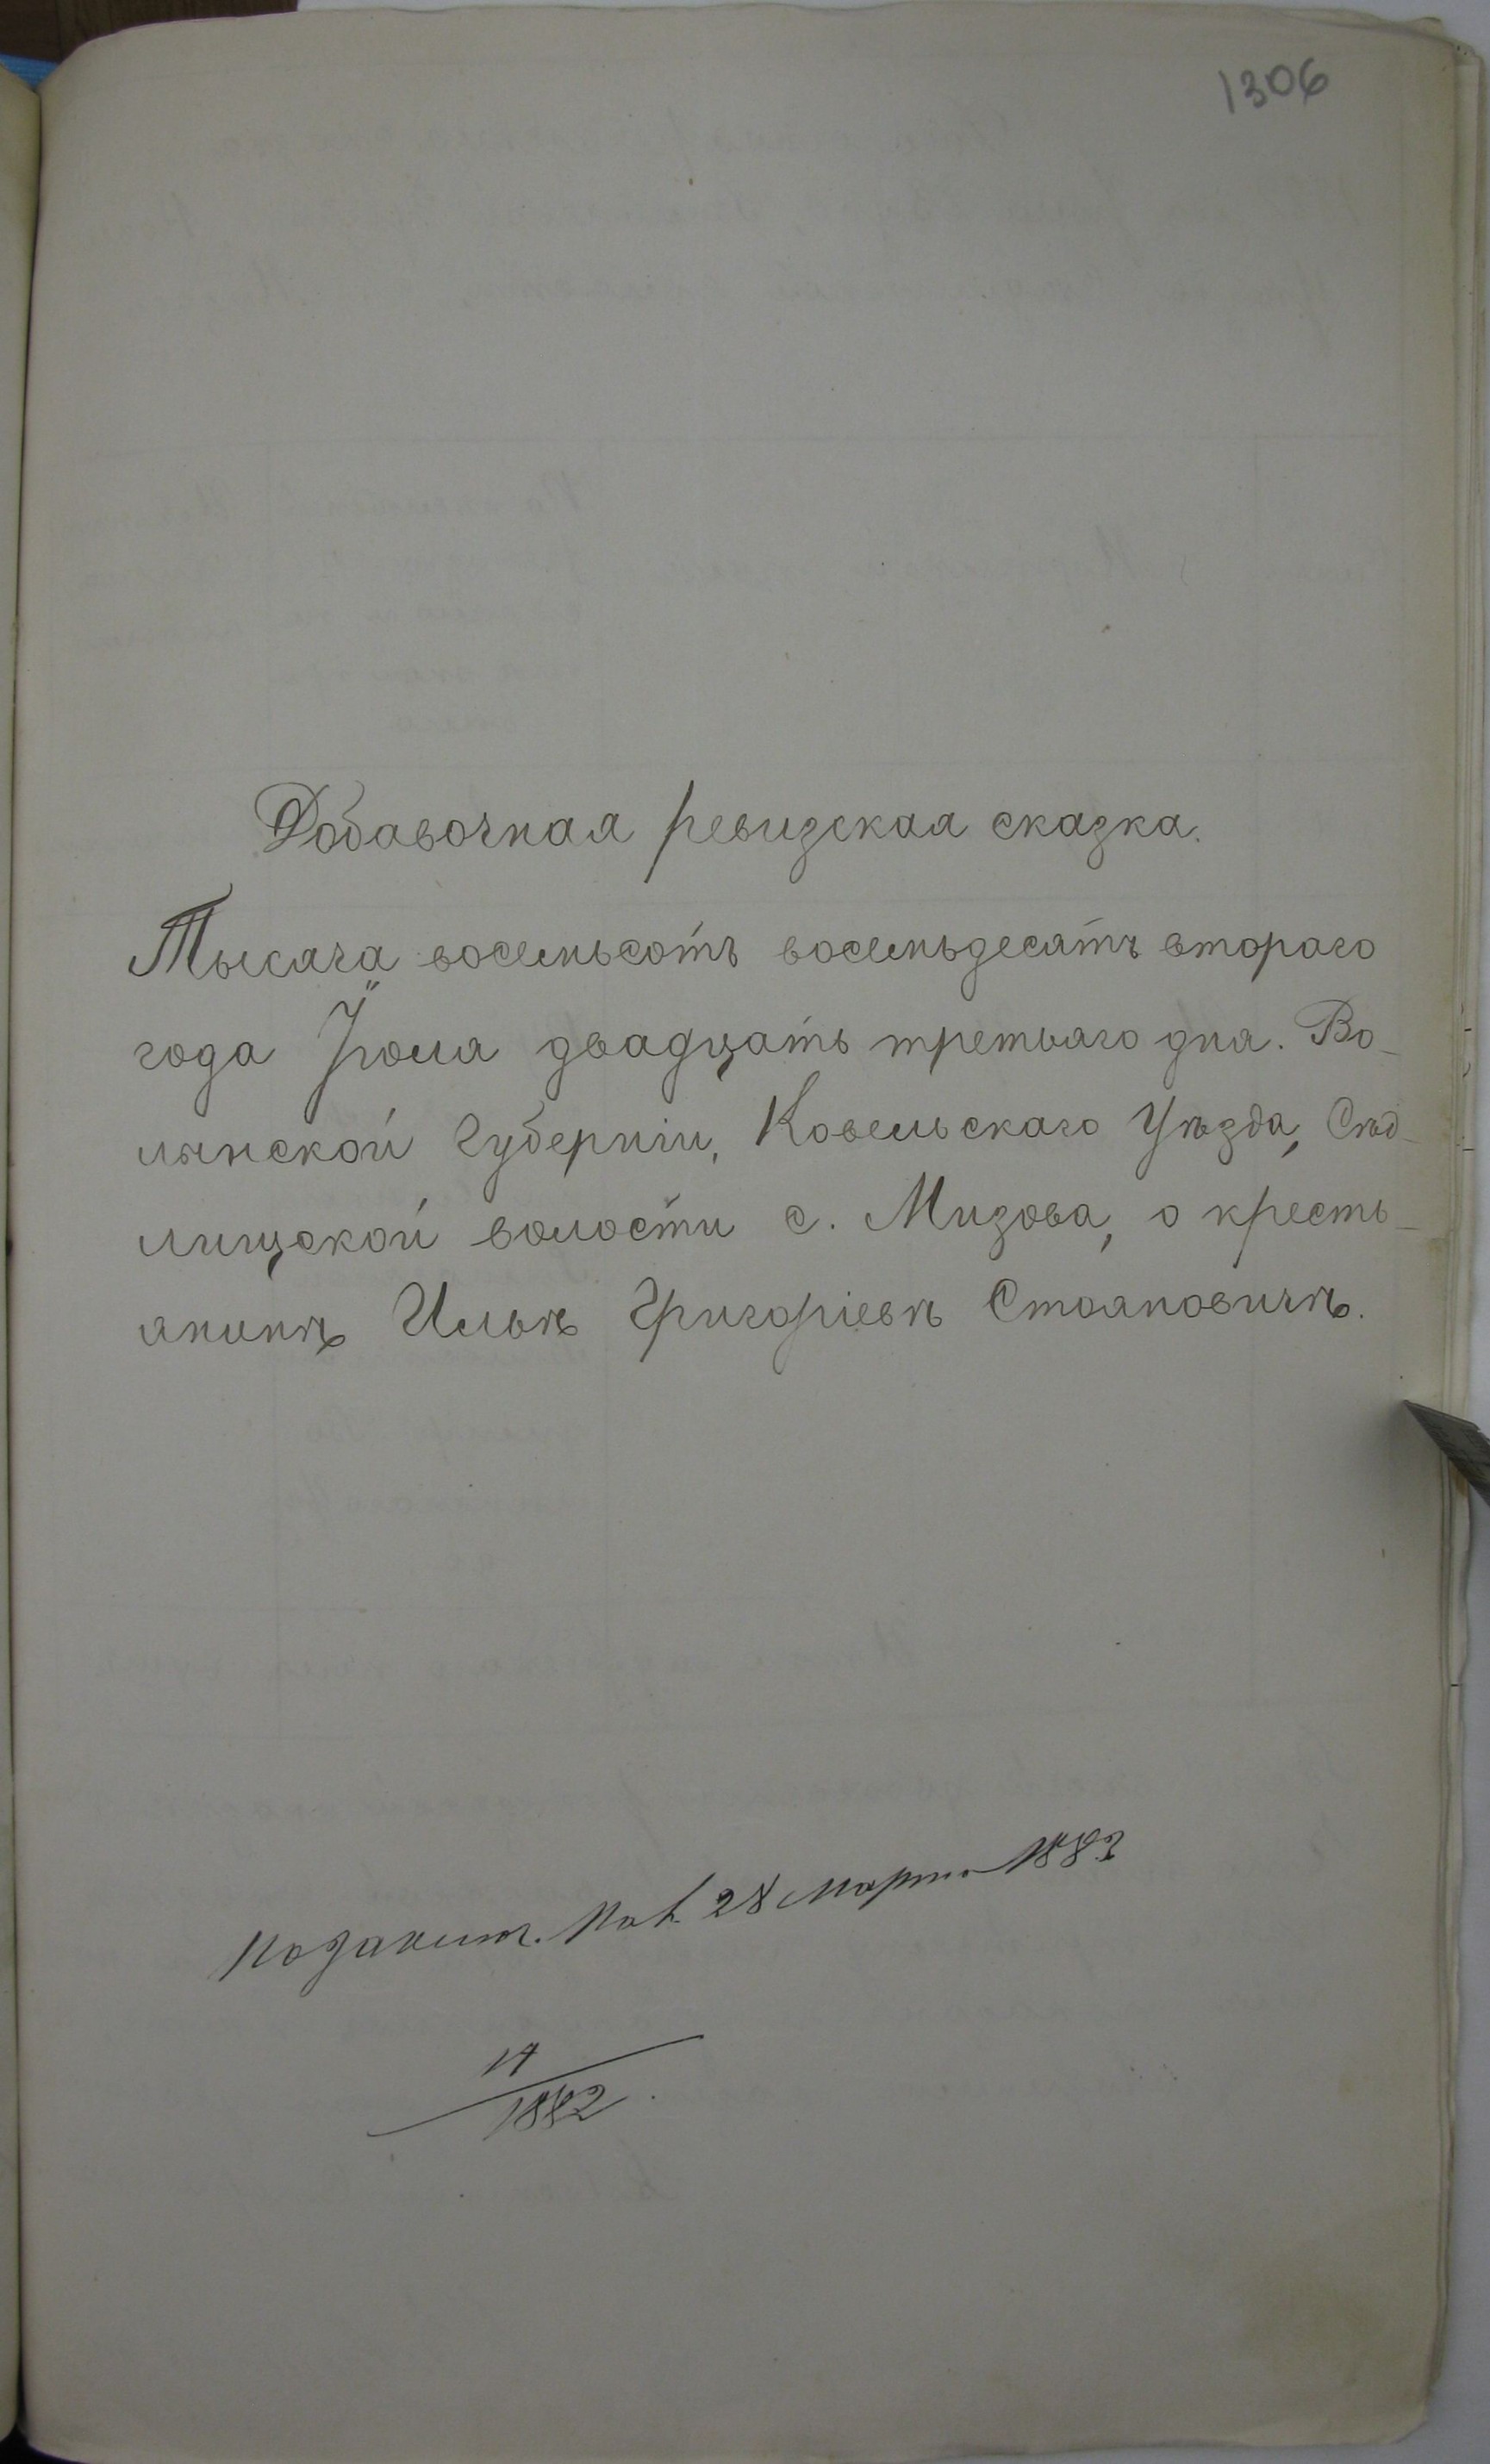 1306
Добавочная ревизская сказка.
Тысяча восемьсотъ восемьдесятъ втораго
года Іюля двадцать третьяго дня. Во-
лынской Губерніи, Ковельскаго Уѣзда, Сѣд-
лищской волости с. Мизова, о кресть-
янинѣ Ильѣ Григоріевѣ Стояновичѣ.
28 Марта 1883
14
1882